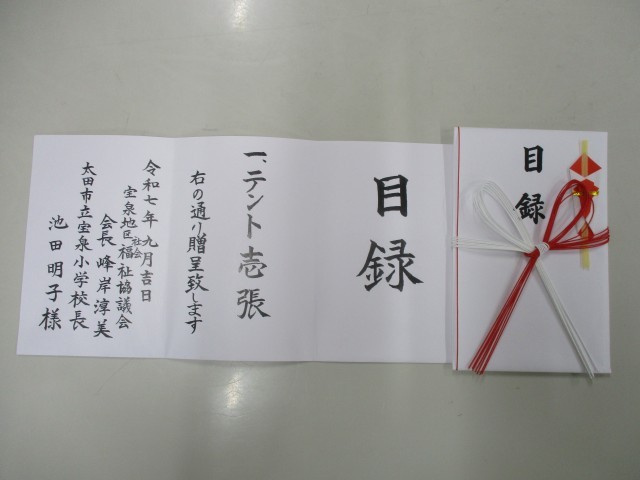 目録
目録
一、テント壱張
右の通り贈呈致します
令和七年九月吉日
宝泉地区社会福祉協議会
会長 峰岸淳美
太田市立宝泉小学校長
池田明子様